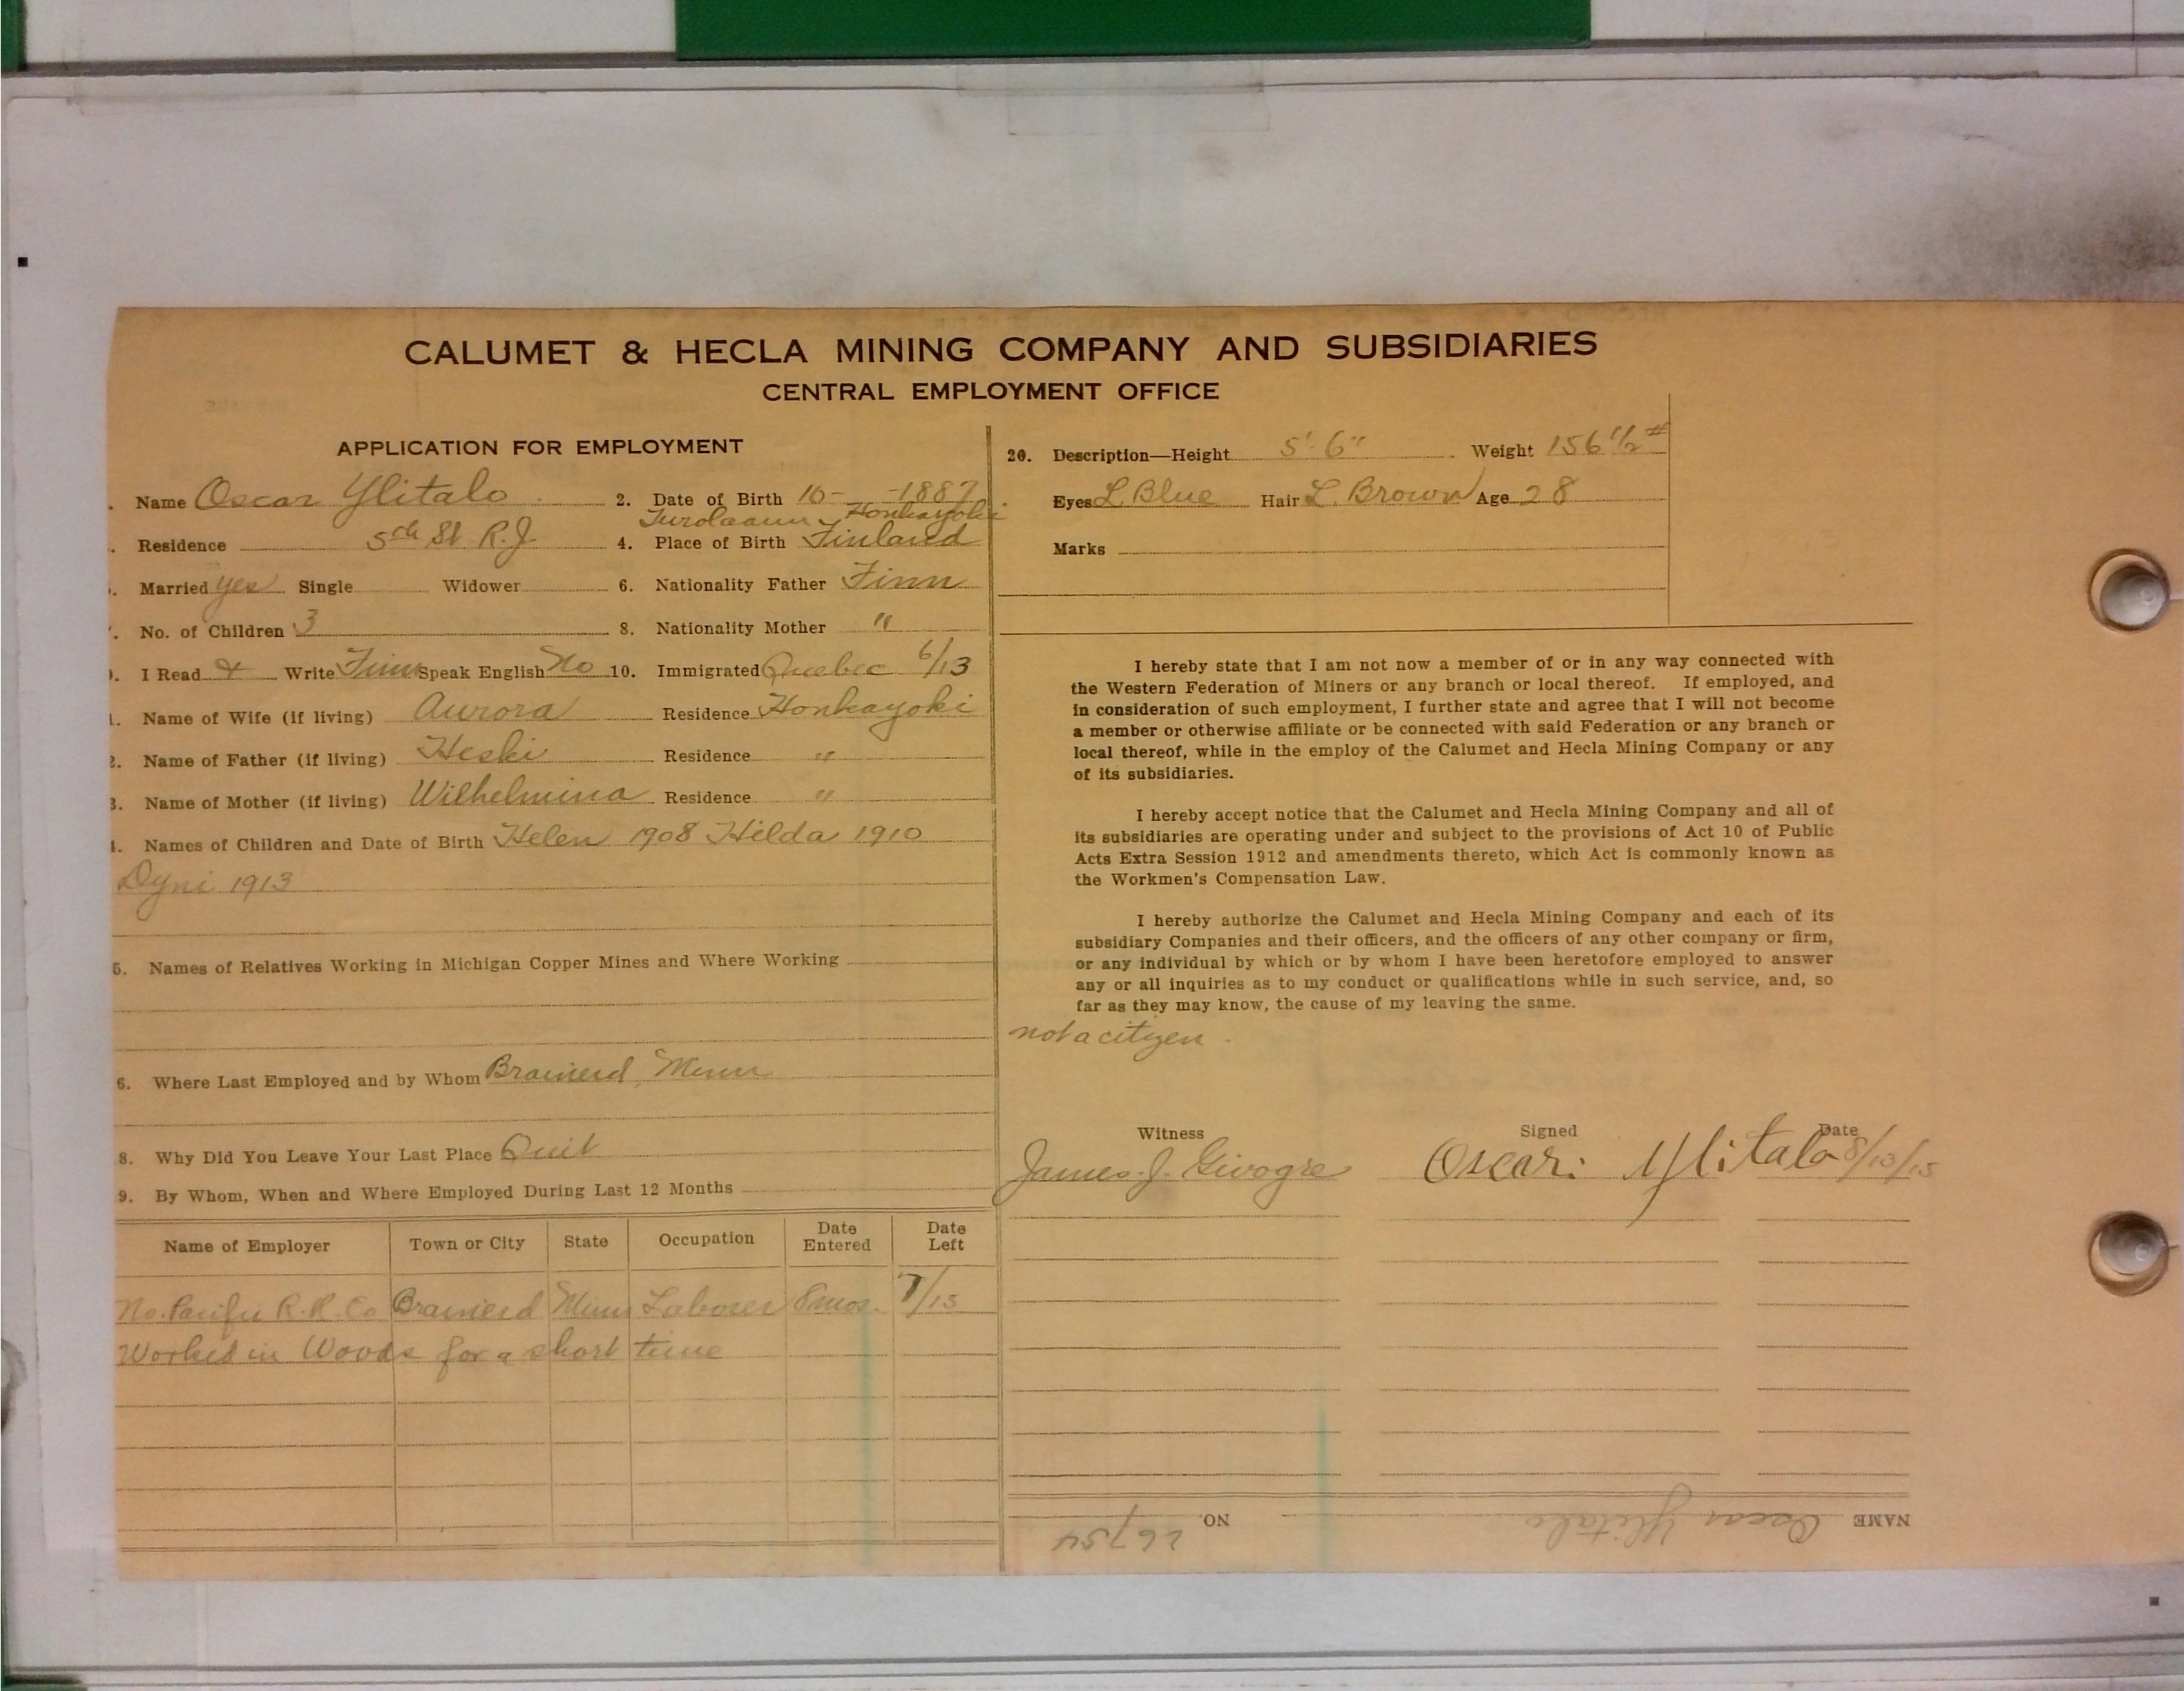 CALUMET & HECLA MINING COMPANY AND SUBSIDIARIES
CENTRAL EMPLOYMENT OFFICE
APPLICATION FOR EMPLOYMENT
. Name Oscar Ylitalo 2. Date of Birth 10- -1887
Honkayoki
. Residence 5th St R.J. 4. Place of Birth Finland
. Married yes Single Widower 6. Nationality Father Finn
. No. of Children 3 8. Nationality Mother "
. I Read & Write Finn Speak English No 10. Immigrated Quebec 6/13
1. Name of Wife (if living) Aurora Residence Honkayoki
2. Name of Father (if living) Heski Residence "
3. Name of Mother (if living) Wilhelmina Residence "
4. Names of Children and Date of Birth Helen 1908 Hilda 1910
Dyni 1913
5. Names of Relatives Working in Michigan Copper Mines and Where Working
6. Where Last Employed and by Whom Brainerd, Minn
8. Why Did You Leave Your Last Place Quit
9. By Whom, When and Where Employed During Last 12 Months
Name of Employer Town or City State Occupation Date Entered Date Left
No. Pacific R.R. Co Brainerd Minn Laborer 8 mos. 7/15
Worked in Woods for a short time
20. Description—Height 5' 6" Weight 156 1/2 #
Eyes L. Blue Hair L. Brown Age 28
Marks
I hereby state that I am not now a member of or in any way connected with
the Western Federation of Miners or any branch or local thereof. If employed, and
in consideration of such employment, I further state and agree that I will not become
a member or otherwise affiliate or be connected with said Federation or any branch or
local thereof, while in the employ of the Calumet and Hecla Mining Company or any
of its subsidiaries.
I hereby accept notice that the Calumet and Hecla Mining Company and all of
its subsidiaries are operating under and subject to the provisions of Act 10 of Public
Acts Extra Session 1912 and amendments thereto, which Act is commonly known as
the Workmen's Compensation Law.
I hereby authorize the Calumet and Hecla Mining Company and each of its
subsidiary Companies and their officers, and the officers of any other company or firm,
or any individual by which or by whom I have been heretofore employed to answer
any or all inquiries as to my conduct or qualifications while in such service, and, so
far as they may know, the cause of my leaving the same.
not a citizen.
Witness Signed Date
James J. Givogre Oscari Ylitalo 8/13/15
NAME Oscar Ylitalo NO. 26754